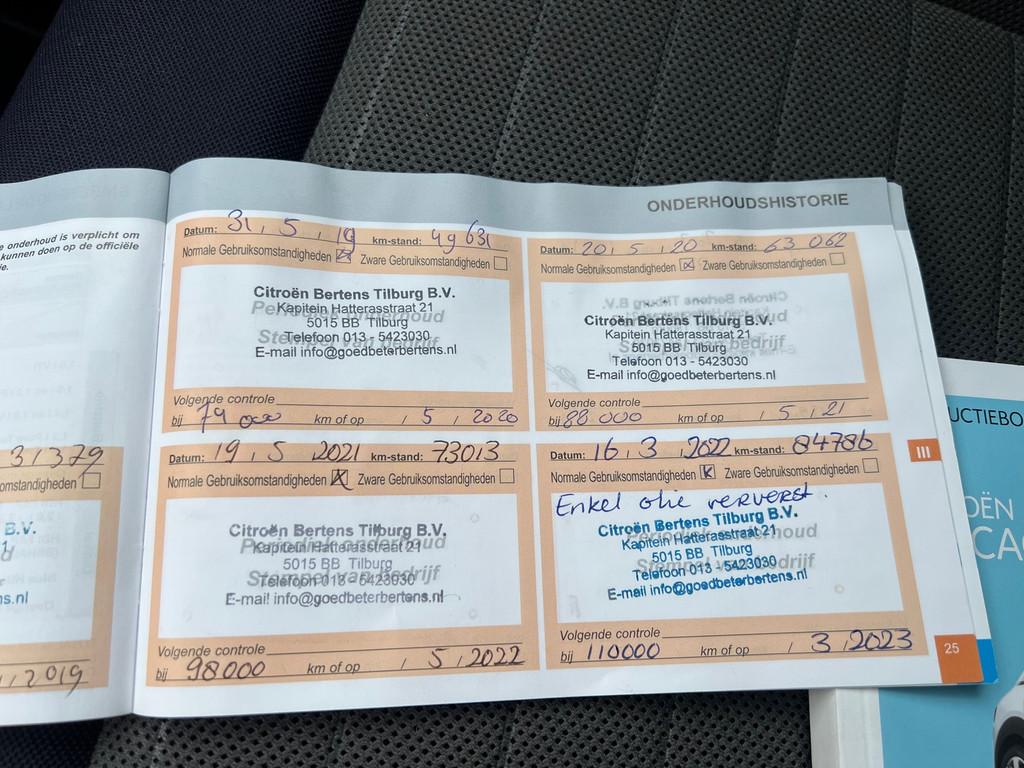 e onderhoud is verplicht om
kunnen doen op de officiële
ie.
31379
omstandigheden
B.V.
s.nl
2019
ONDERHOUDSHISTORIE
Datum: 31, 5, 19 km-stand: 49 631
Normale Gebruiksomstandigheden ☒ Zware Gebruiksomstandigheden ☐
Citroën Bertens Tilburg B.V.
Kapitein Hatterasstraat 21
5015 BB Tilburg
Telefoon 013 - 5423030
E-mail info@goedbeterbertens.nl
Volgende controle
bij 74 000 km of op / 5 / 2020
Datum: 20, 5, 20 km-stand: 63 062
Normale Gebruiksomstandigheden ☒ Zware Gebruiksomstandigheden ☐
Citroën Bertens Tilburg B.V.
Kapitein Hatterasstraat 21
5015 BB Tilburg
Telefoon 013 - 5423030
E-mail info@goedbeterbertens.nl
Volgende controle
bij 88 000 km of op / 5 / 21
Datum: 19, 5, 2021 km-stand: 73013
Normale Gebruiksomstandigheden ☒ Zware Gebruiksomstandigheden ☐
Citroën Bertens Tilburg B.V.
Kapitein Hatterasstraat 21
5015 BB Tilburg
Telefoon 013 - 5423030
E-mail info@goedbeterbertens.nl
Volgende controle
bij 98000 km of op / 5, 2022
Datum: 16, 3, 2022 km-stand: 84786
Normale Gebruiksomstandigheden ☒ Zware Gebruiksomstandigheden ☐
Enkel olie ververst.
Citroën Bertens Tilburg B.V.
Kapitein Hatterasstraat 21
5015 BB Tilburg
Telefoon 013 - 5423030
E-mail info@goedbeterbertens.nl
Volgende controle
bij 110000 km of op / 3, 2023
III
25
UCTIEBO
OËN
CA